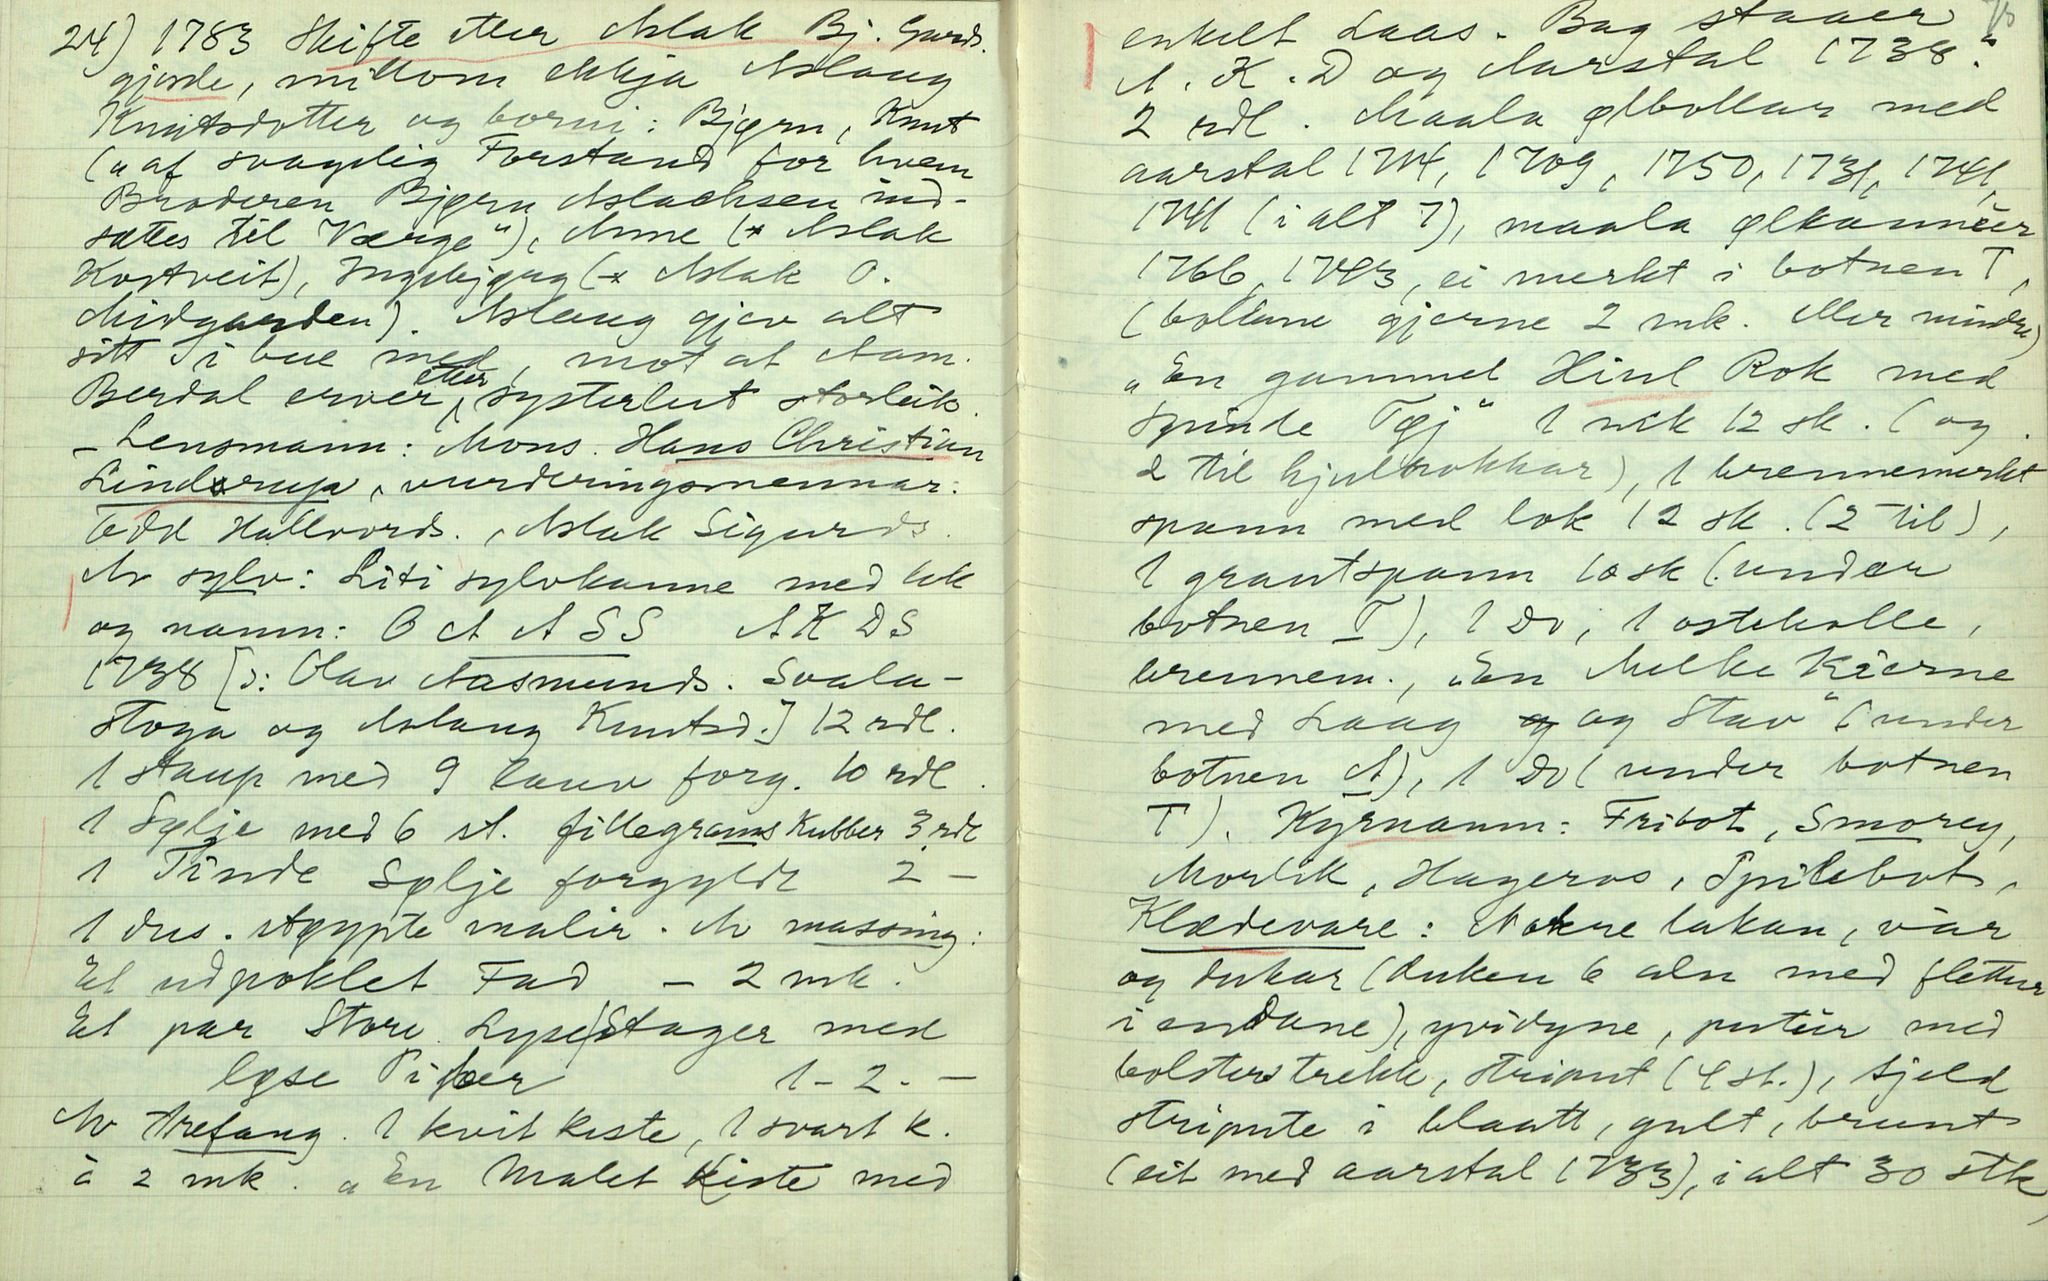 24) 1783 Skifte etter Aslak Bj. Gards-
gjerde, millom ekkja Aslaug
Knutsdotter og borni: Bjørn, Knut
(„af svagelig Forstand for hvem
Broderen Bjørn Aslachsen ind-
sættes til Værge“), Anne (x Aslak
Kostveit), Ingebjørg (x Aslak O.
Midgarden). Aslaug gjev alt
sitt i bue med, mot at Aam.
Berdal erver etter systerlut storleik.
- Lensmann: Mons. Hans Christian
Linderup, vurderingsmennar:
Odd Hallvords., Aslak Sigurds.
Av sylv: Liti sylvkanne med lok
og namn: O A A S S A K D S
1738 [o: Olav Aasmunds. Svala-
stoga og Aslaug Knutsd.] 12 rdl.
1 staup med 9 lauv forg. 10 rdl.
1 Sølje med 6 st. fillegrams Kubber 3 rdl
1 Tinde Sølje forgyldt 2 -
1 dus. Ægypte malir. Av massing:
Et udpoklet Fad - 2 mk.
Et par Store Lyse Stager med
lyse Piber 1 - 2. -
Av trefang. 1 kvit kiste, 1 svart k.
à 2 mk. „En Malet Kiste med
75
enkelt Laas. Bag staaer
A. K. D og Aarstal 1738.“
2 rdl. Maala ølbollar med
aarstal 1714, 1709, 1750, 1731, 1741,
1741 (i alt 7), maala ølkanneer
1766, 1743, ei merkt i botnen T,
(bollane gjerne 2 mk. eller mindre)
„En gammel Hiul Rok med
Spinde Tøj“ 1 mk 12 sk. (og
2 til hjulrokkar), 1 brennemerkt
spann med lok 12 sk. (2 til),
1 grautspann 10 sk (under
botnen T), 1 Do, 1 ostekolle,
brennem., „En Melke Kierne
med Laag og Stav“ (under
botnen A), 1 Do (under botnen
T). Kyrnamn: Fribot, Smorey,
Morlik, Hageros, Spilebot,
Klædevare: Nokre lakan, var
og dukar (duken 6 aln med flettur
i endane), yvidyne, puteer med
bolsters trekk, striput (4 st.), Åjeld
stripute i blaatt, gult, brunt
(eit med aarstal 1733), i alt 30 stk,